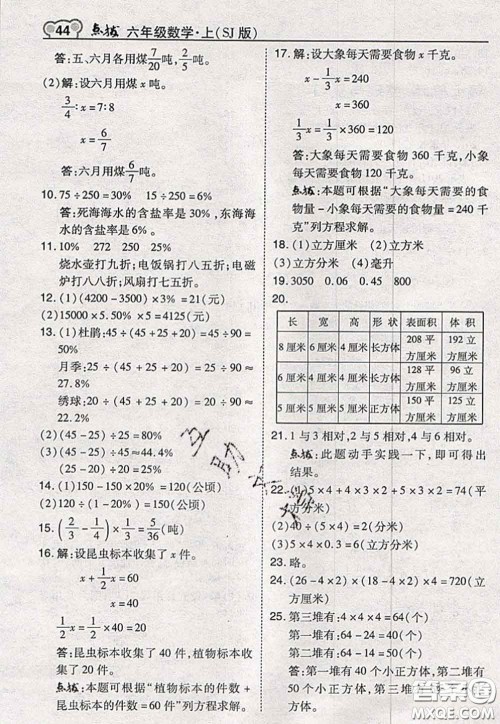 44 点拨 六年级数学·上(SJ版)
答:五、六月各用煤7/20吨、1/2吨。
(2)解:设六月用煤x吨。
3/4:x=7:8
x=6/7
答:六月用煤6/7吨。
10. 75÷250=30%  15÷250=6%
答:死海海水的含盐率是30%,东海海水的含盐率是6%。
11. 10%  272  250  25%
烧水壶打九折;电饭锅打八五折;电磁炉打八八折;风扇打七五折。
12. (1)(4200-3500)×3%=21(元)
(2)15000×5.5%×2=1650(元)
13. (1)杜鹃:45÷(45+25+20)=45÷90=50%
月季:25÷(45+25+20)=25÷90≈27.8%
绣球:20÷(45+25+20)=20÷90≈22.2%
(2)(45-25)÷25=80%
(3)(45-25)÷45≈44.4%
14. (1)150×(1-20%)=120(公顷)
(2)120÷(1-20%)=150(公顷)
15. (2/3-1/4)×1/3=5/36(吨)
16. 解:设昆虫标本收集了x件。
x+1/2x=60
x=40
1/2x=1/2×40=20
答:昆虫标本收集了40件,植物标本收集了20件。
点拨:本题可根据“植物标本的件数+昆虫标本的件数=60件”列方程求解。
17. 解:设大象每天需要食物x千克。
x-1/3x=240
x=360
1/3x=1/3×360=120
答:大象每天需要食物360千克,小象每天需要食物120千克。
点拨:本题可根据“大象每天需要的食物量-小象每天需要的食物量=240千克”列方程求解。
18. (1)立方厘米 (2)立方米
(3)立方分米 (4)毫升
19. 3050  0.06  0.45  800
20.
长 宽 高 形状 表面积 体积
8厘米 6厘米 4厘米 长方体 208平方厘米 192立方厘米
6厘米 4厘米 4厘米 长方体 128平方厘米 96立方厘米
5厘米 5厘米 5厘米 正方体 150平方厘米 125立方厘米
21. 1与3相对,2与5相对,4与6相对。
点拨:此题动手实践一下,即可得出结果。
22. (1)5×4+4×3×2+5×3×2=74(平方分米)
(2)40÷(5×4)=2(分米)
(3)5×4×3=60(立方分米)
23. 略。
24. (26-4×2)×(18-4×2)×4=720(立方厘米)
25. 第三堆有:4×4×4=64(个)
第一堆有:64-24=40(个)
第二堆有:64-14=50(个)
答:第一堆有40个小正方体,第二堆有50个小正方体,第三堆有64个小正方体。
答案圈
MXQE.COM